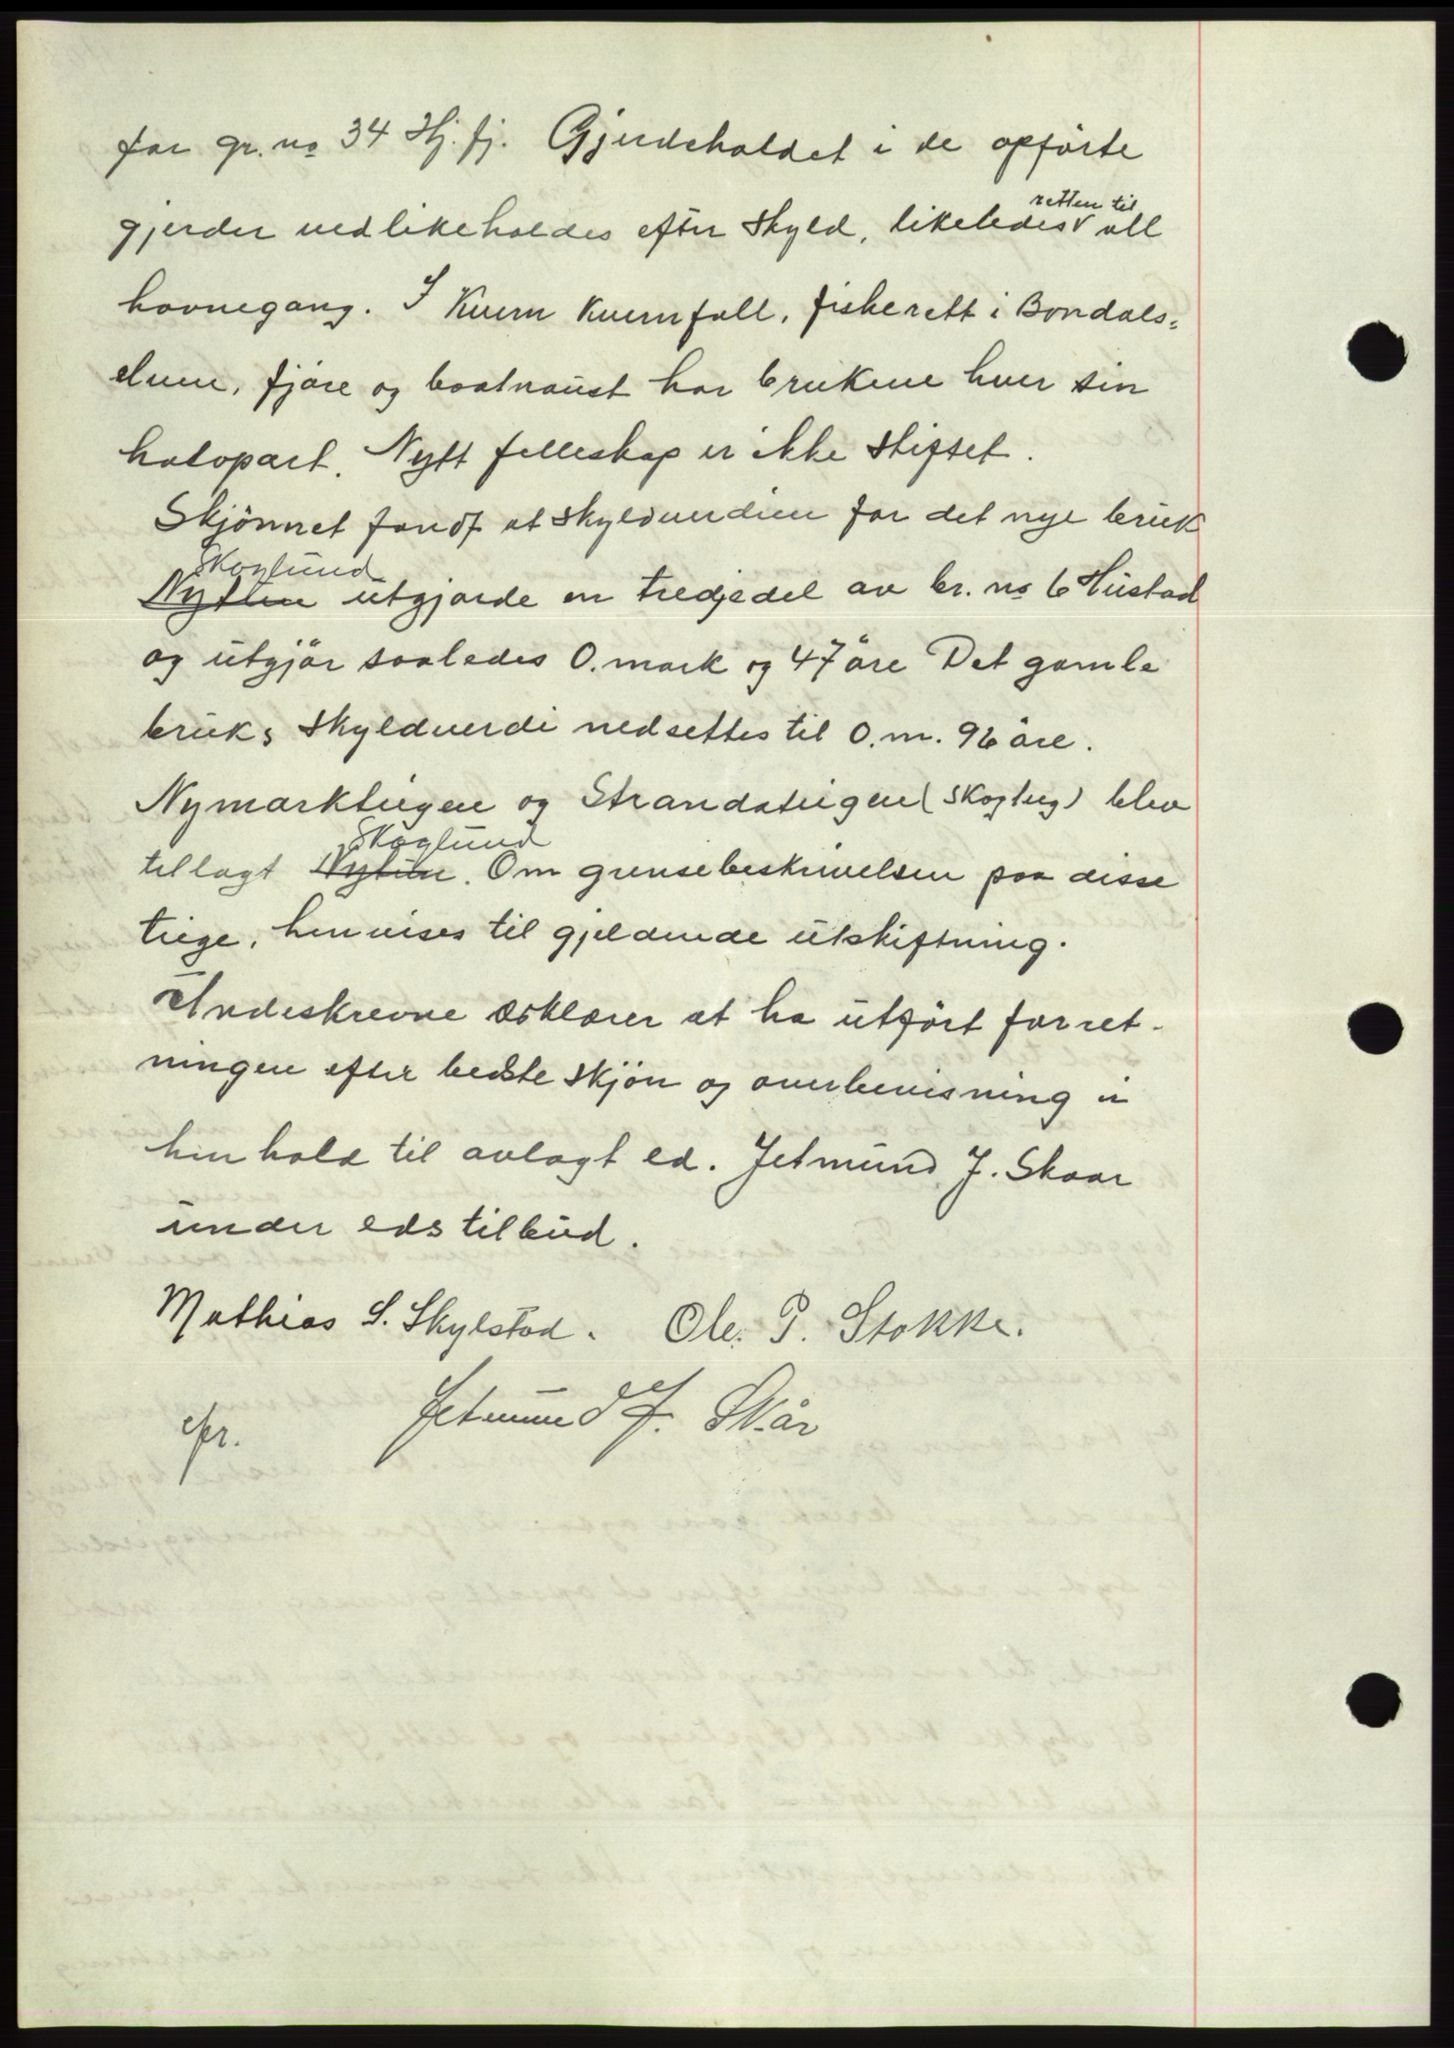 for gr. no 34 Hj. fj. Gjerdeholdet i de opførte
gjerder vedlikeholdes efter skyld, likeledes retten til all
havnegang. I Kvern Kvernfall, fiskerett i Bondals-
elven, fjøre og baatnaust har brukene hver sin
halvpart. Nytt felleskap er ikke stiftet.
Skjönnet fandt at skyldverdien for det nye bruk
Skoglund
Nytun utgjorde en tredjedel av br. no 6 Hustad
og utgjör saaledes 0. mark og 47 öre Det gamle
bruks skyldverdi nedsettes til 0. m. 96 öre.
Nymarkteigen og Strandateigen (Skogteig) blev
Skoglund
tillagt Nytun. Om grensebeskrivelsen paa disse
teige, henvises til gjeldende utskiftning.
Undeskrevne erklærer at ha utfört forret-
ningen efter bedste skjön og overbevisning i
henhold til avlagt ed. Jetmund J. Skaar
under edstilbud.
Mathias S. Skylstad. Ole. P. Stokke.
Jetmund J. Skår